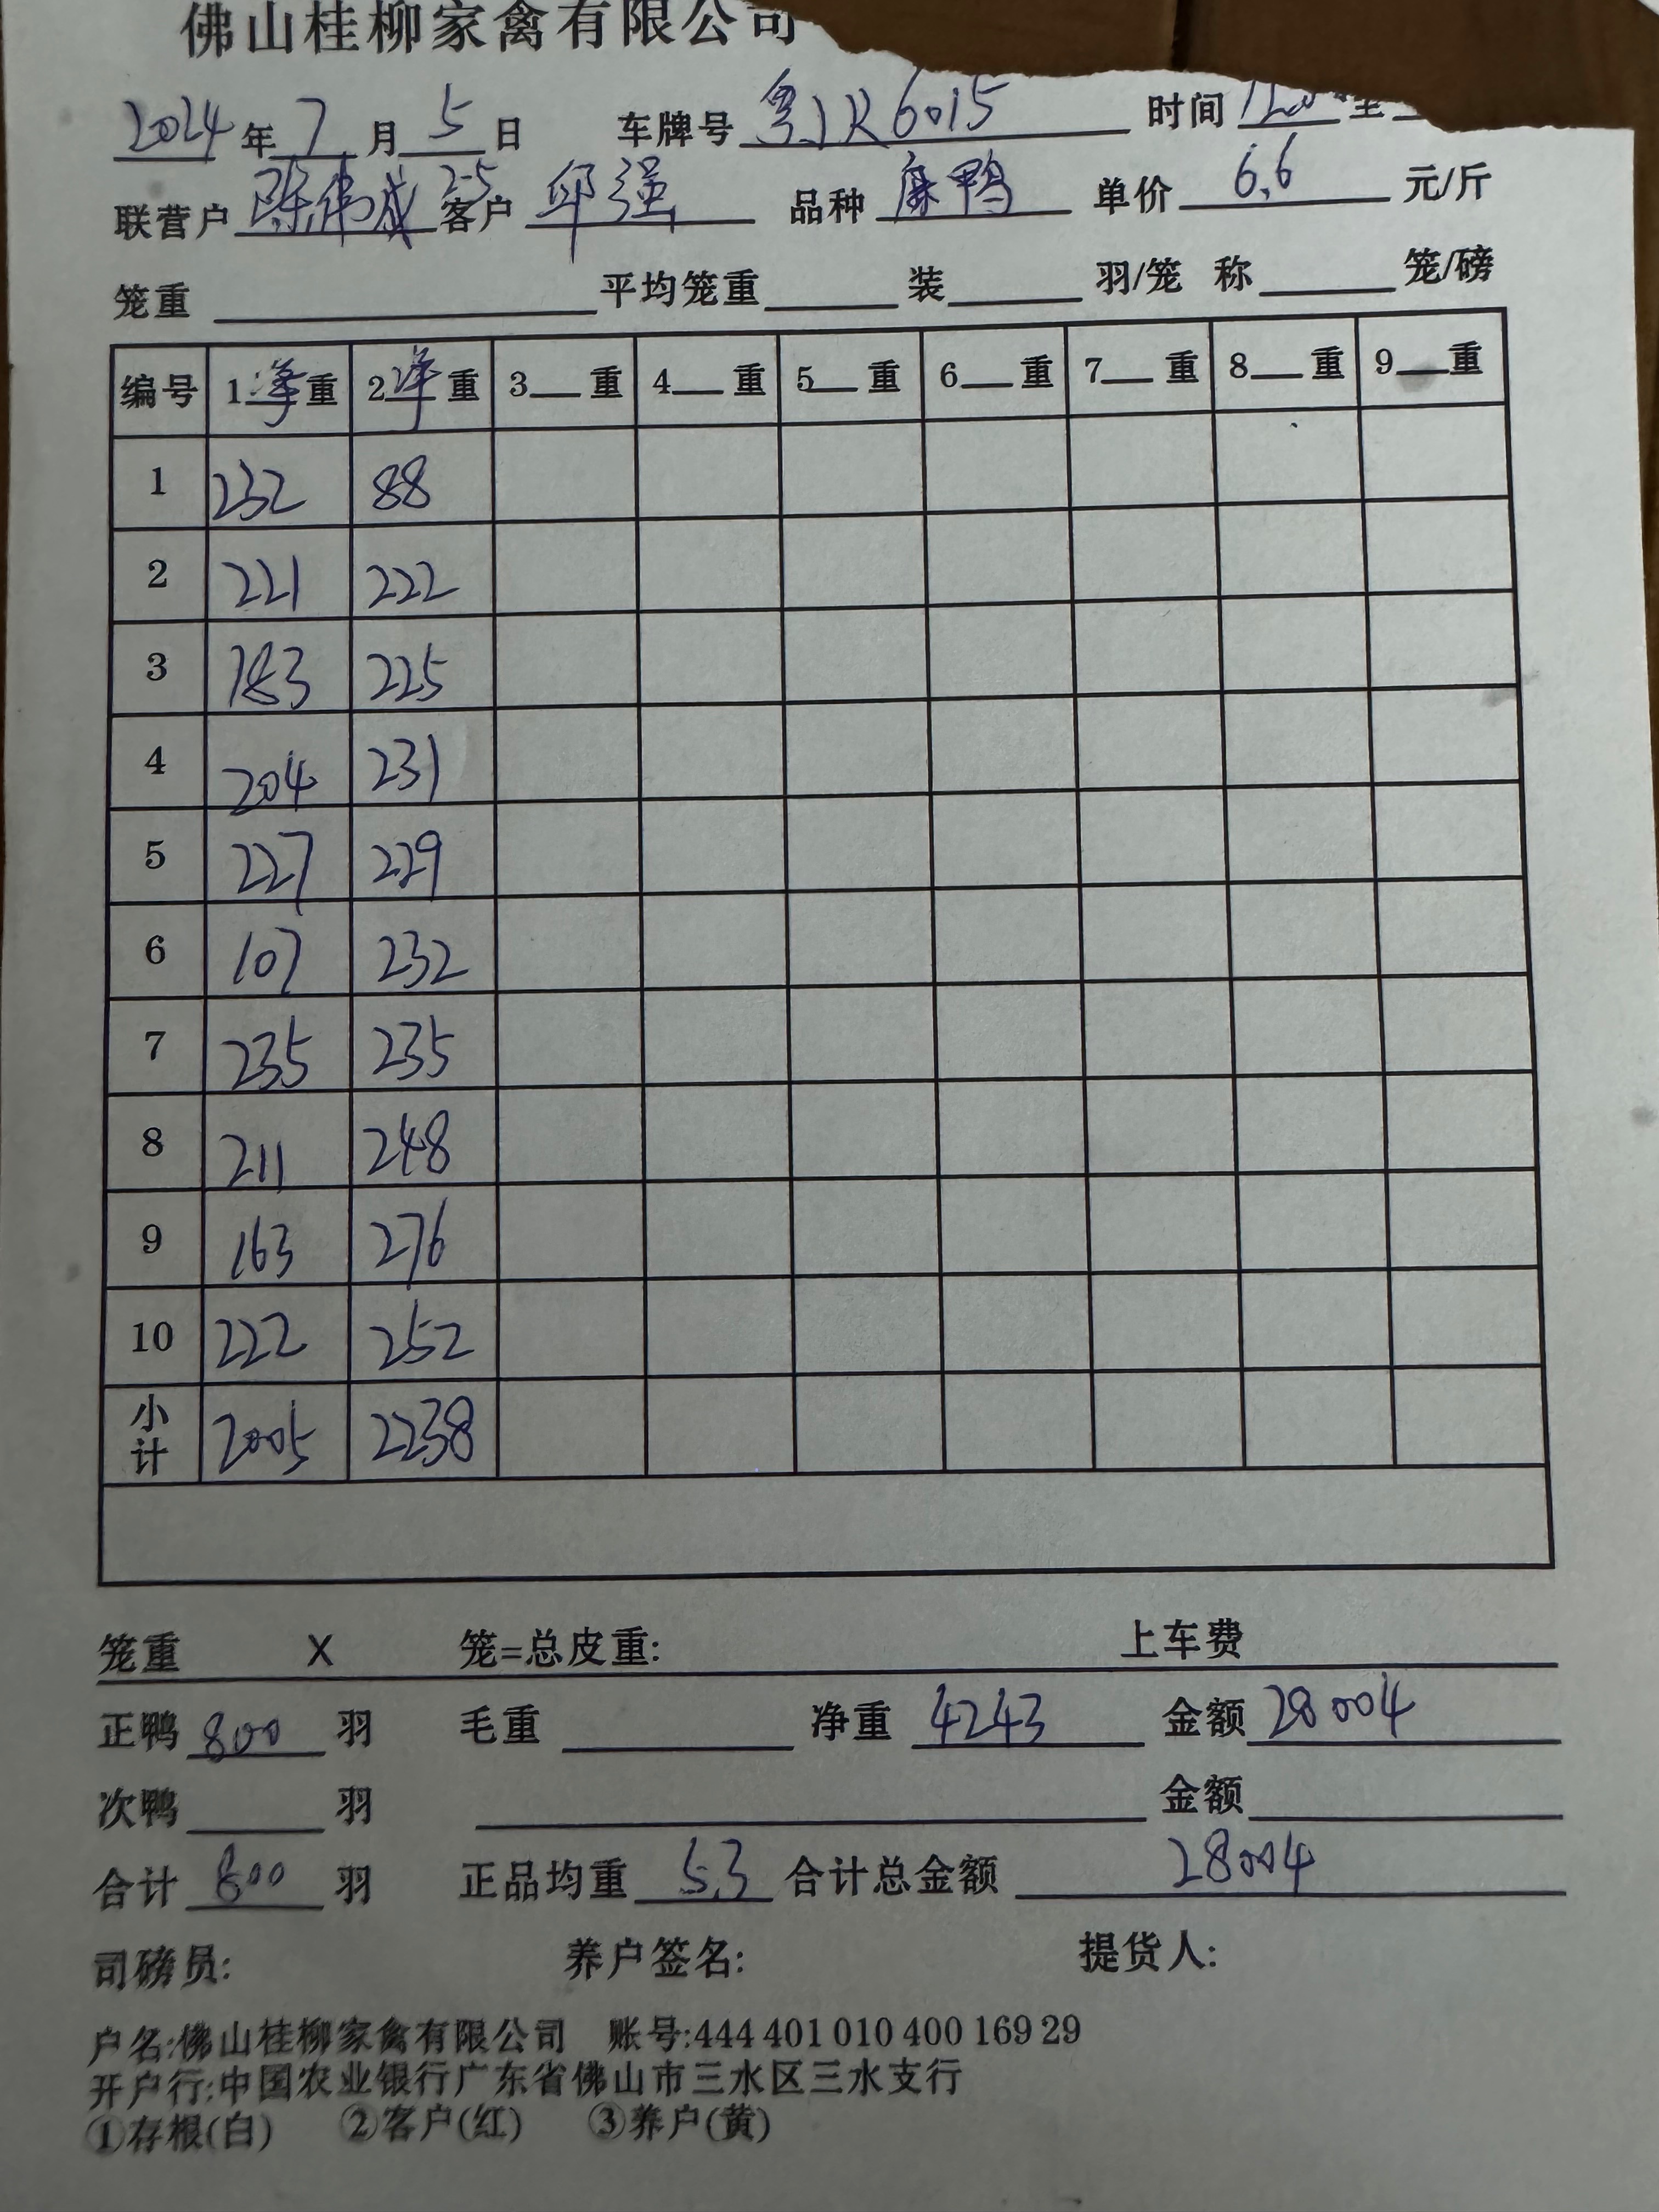 佛山桂柳家禽有限公司
2024年7月5日 车牌号粤JR6015 时间 至
联营户陈伟成25客户邱强 品种麻鸭 单价6.6元/斤
笼重 平均笼重 装 羽/笼 称 笼/磅
编号 1净重 2净重 3 重 4 重 5 重 6 重 7 重 8 重 9 重
1 232 88
2 221 222
3 183 225
4 204 231
5 227 229
6 107 232
7 235 235
8 211 248
9 163 276
10 222 252
小计 2005 2238
笼重 X 笼=总皮重: 上车费
正鸭800羽 毛重 净重4243 金额28004
次鸭 羽 金额
合计800羽 正品均重5.3 合计总金额28004
司磅员: 养户签名: 提货人:
户名:佛山桂柳家禽有限公司 账号:444 401 010 400 169 29
开户行:中国农业银行广东省佛山市三水区三水支行
①存根(白) ②客户(红) ③养户(黄)